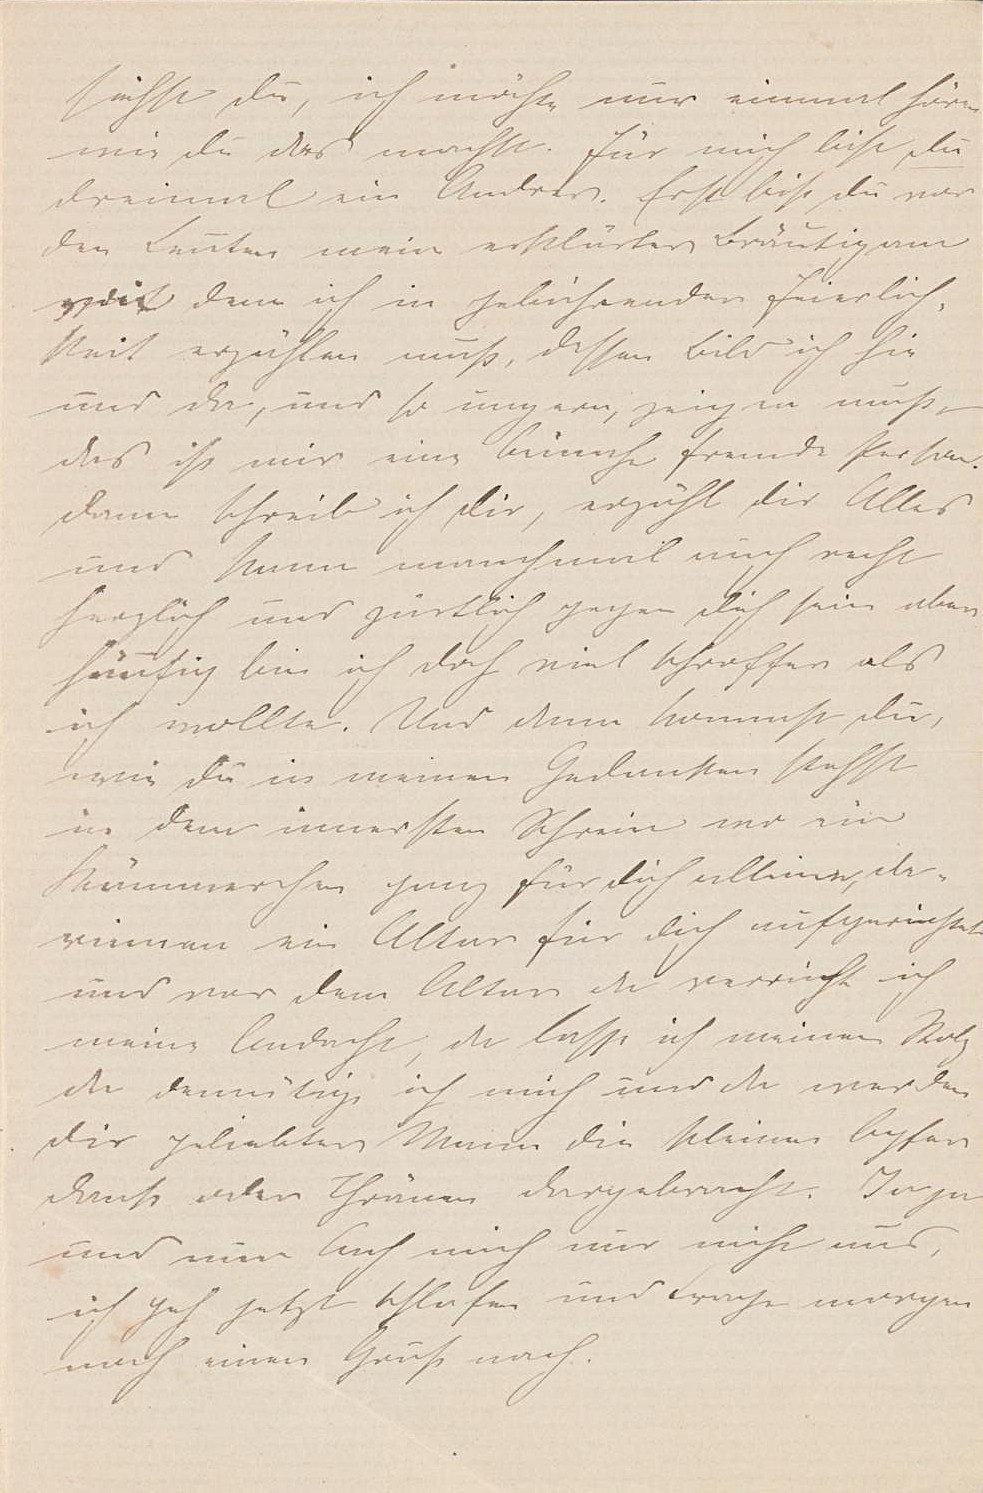 siehst du, ich möchte nur einmal hören
wie du das machst. Für mich bist du
dreimal ein Andrer. Erst bist du vor
den Leuten mein erklärter Bräutigam
von dem ich in gebührender Feierlich-
keit erzählen muß, dessen Bild ich hie
und da, und so ungern, zeigen muß,
das ist mir eine beinahe fremde Person.
dann schreib ich dir, erzähl dir Alles
und kann manchmal auch recht
herzlich und zärtlich gegen dich sein aber
häufig bin ich doch viel schroffer als
ich wollte. Und dann kommst du,
wie du in meinen Gedanken stehst
in dem innersten Schrein wo ein
Kämmerchen ganz für dich alleine, da-
rinnen ein Altar für dich aufgerichtet
und vor dem Altar da verricht ich
meine Andacht, da lasse ich meinen Stolz
da demütige ich mich und da werden
dir geliebter Mann die kleinen Opfer
Dank oder Thränen dargebracht. Ja ja
und nun lach mich nur nicht aus,
ich geh jetzt schlafen und trage morgen
noch einen Gruß nach.